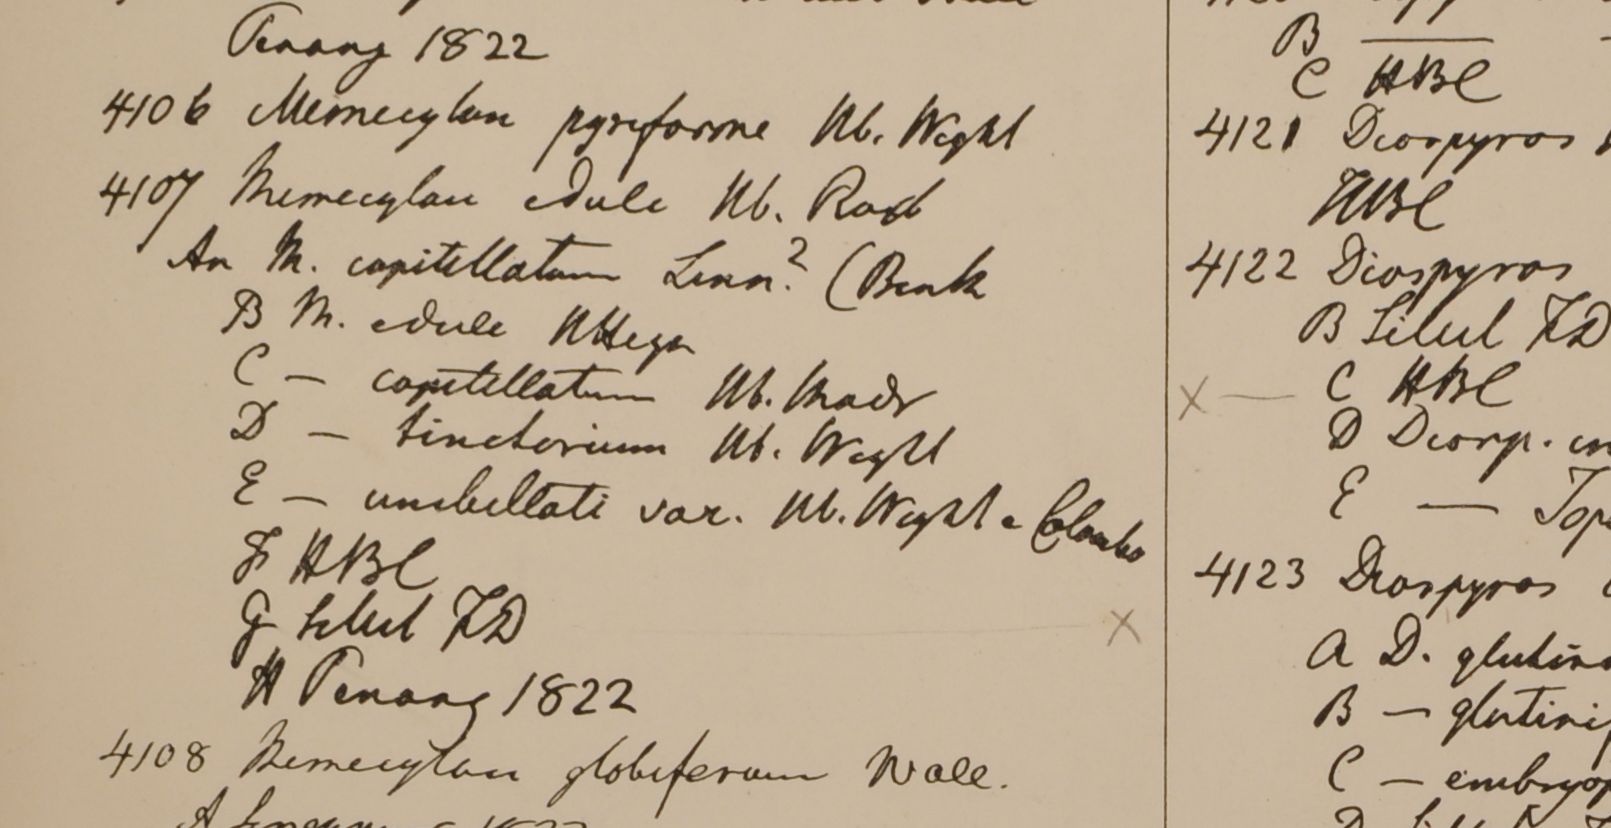 Penang 1822
4106 Memecylon pyriforme Hb. Wight
4107 Memecylon edule Hb. Roxb
An M. capitellatum Linn? (Bentk
B M. edule HHeyn
C — capitellatum Hb. Madr
D — tinctorium Hb. Wight
E — umbellati var. Hb. Wight e Colombo
F HBC
G Silhet FD
H Penang 1822
4108 Memecylon globiferum Wall.
A Singapur 1822
B —
C HBC
4121 Diospyros
HBC
4122 Diospyros
B Silhet FD
× — C HBC
D Diosp.
E —
4123 Diospyros
×
A D. glutino
B — glutini
C — embryop